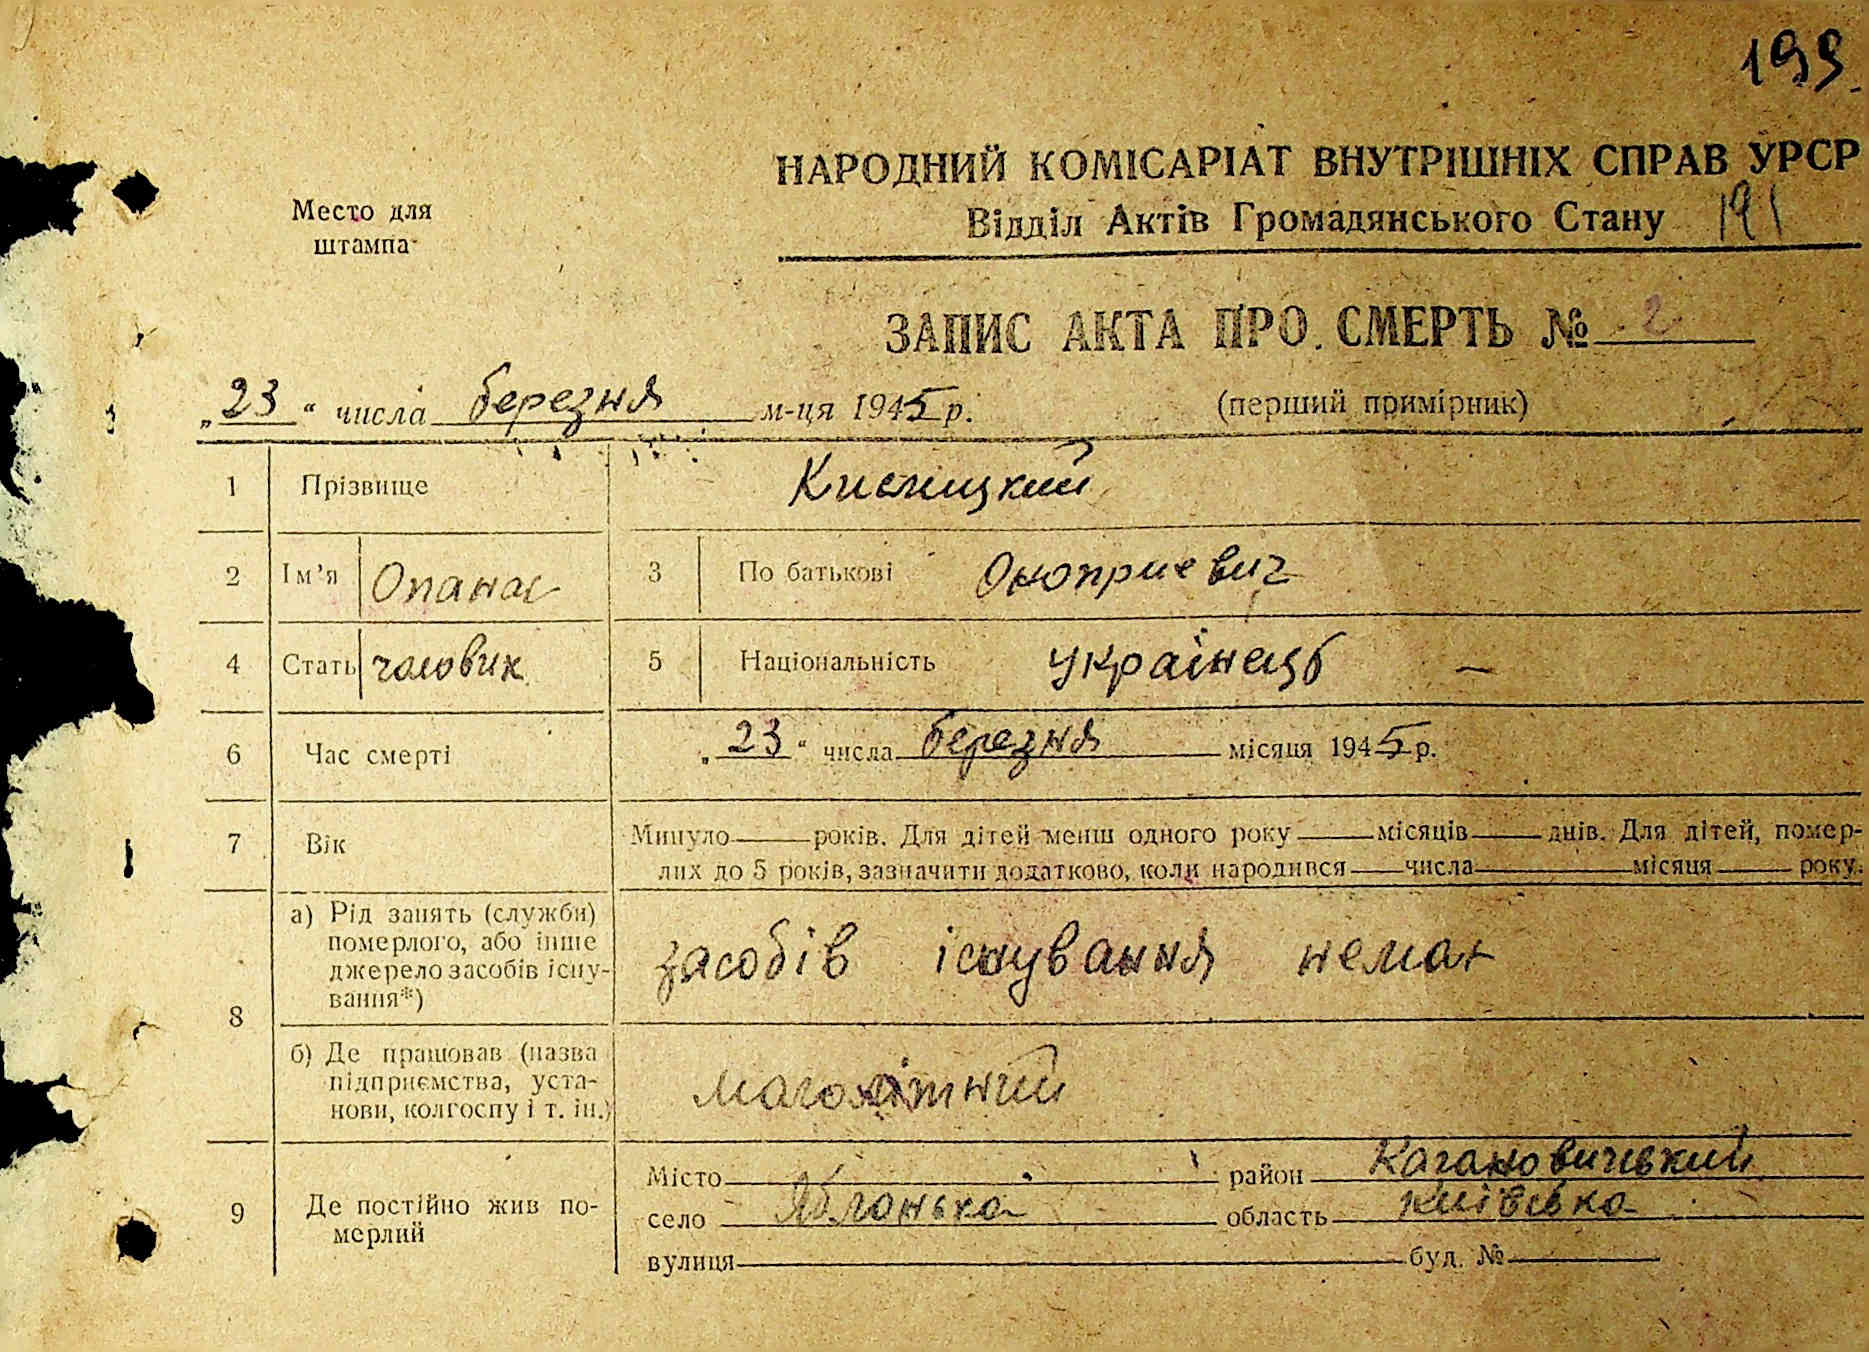 199.
НАРОДНИЙ КОМІСАРІАТ ВНУТРІШНІХ СПРАВ УРСР
Место для штампа
Відділ Актів Громадянського Стану 191
ЗАПИС АКТА ПРО СМЕРТЬ № 2
„23“ числа березня м-ця 1945 р. (перший примірник)
1 Прізвище Кислицкий
2 Ім’я Опанас 3 По батькові Оноприевич
4 Стать чоловик 5 Національність українець —
6 Час смерті „23“ числа березня місяця 1945 р.
7 Вік Минуло — років. Для дітей менш одного року — місяців — днів. Для дітей, помер-
лих до 5 років, зазначити додатково, коли народився — числа — місяця — року.
8 а) Рід занять (служби)
померлого, або інше
джерело засобів існу-
вання*) засобів існування немає
б) Де працював (назва
підприємства, уста-
нови, колгоспу і т. ін.) малолітний
9 Де постійно жив по-
мерлий
Місто район Кагановичівький
село Яблонька область Київівка
вулиця буд. №